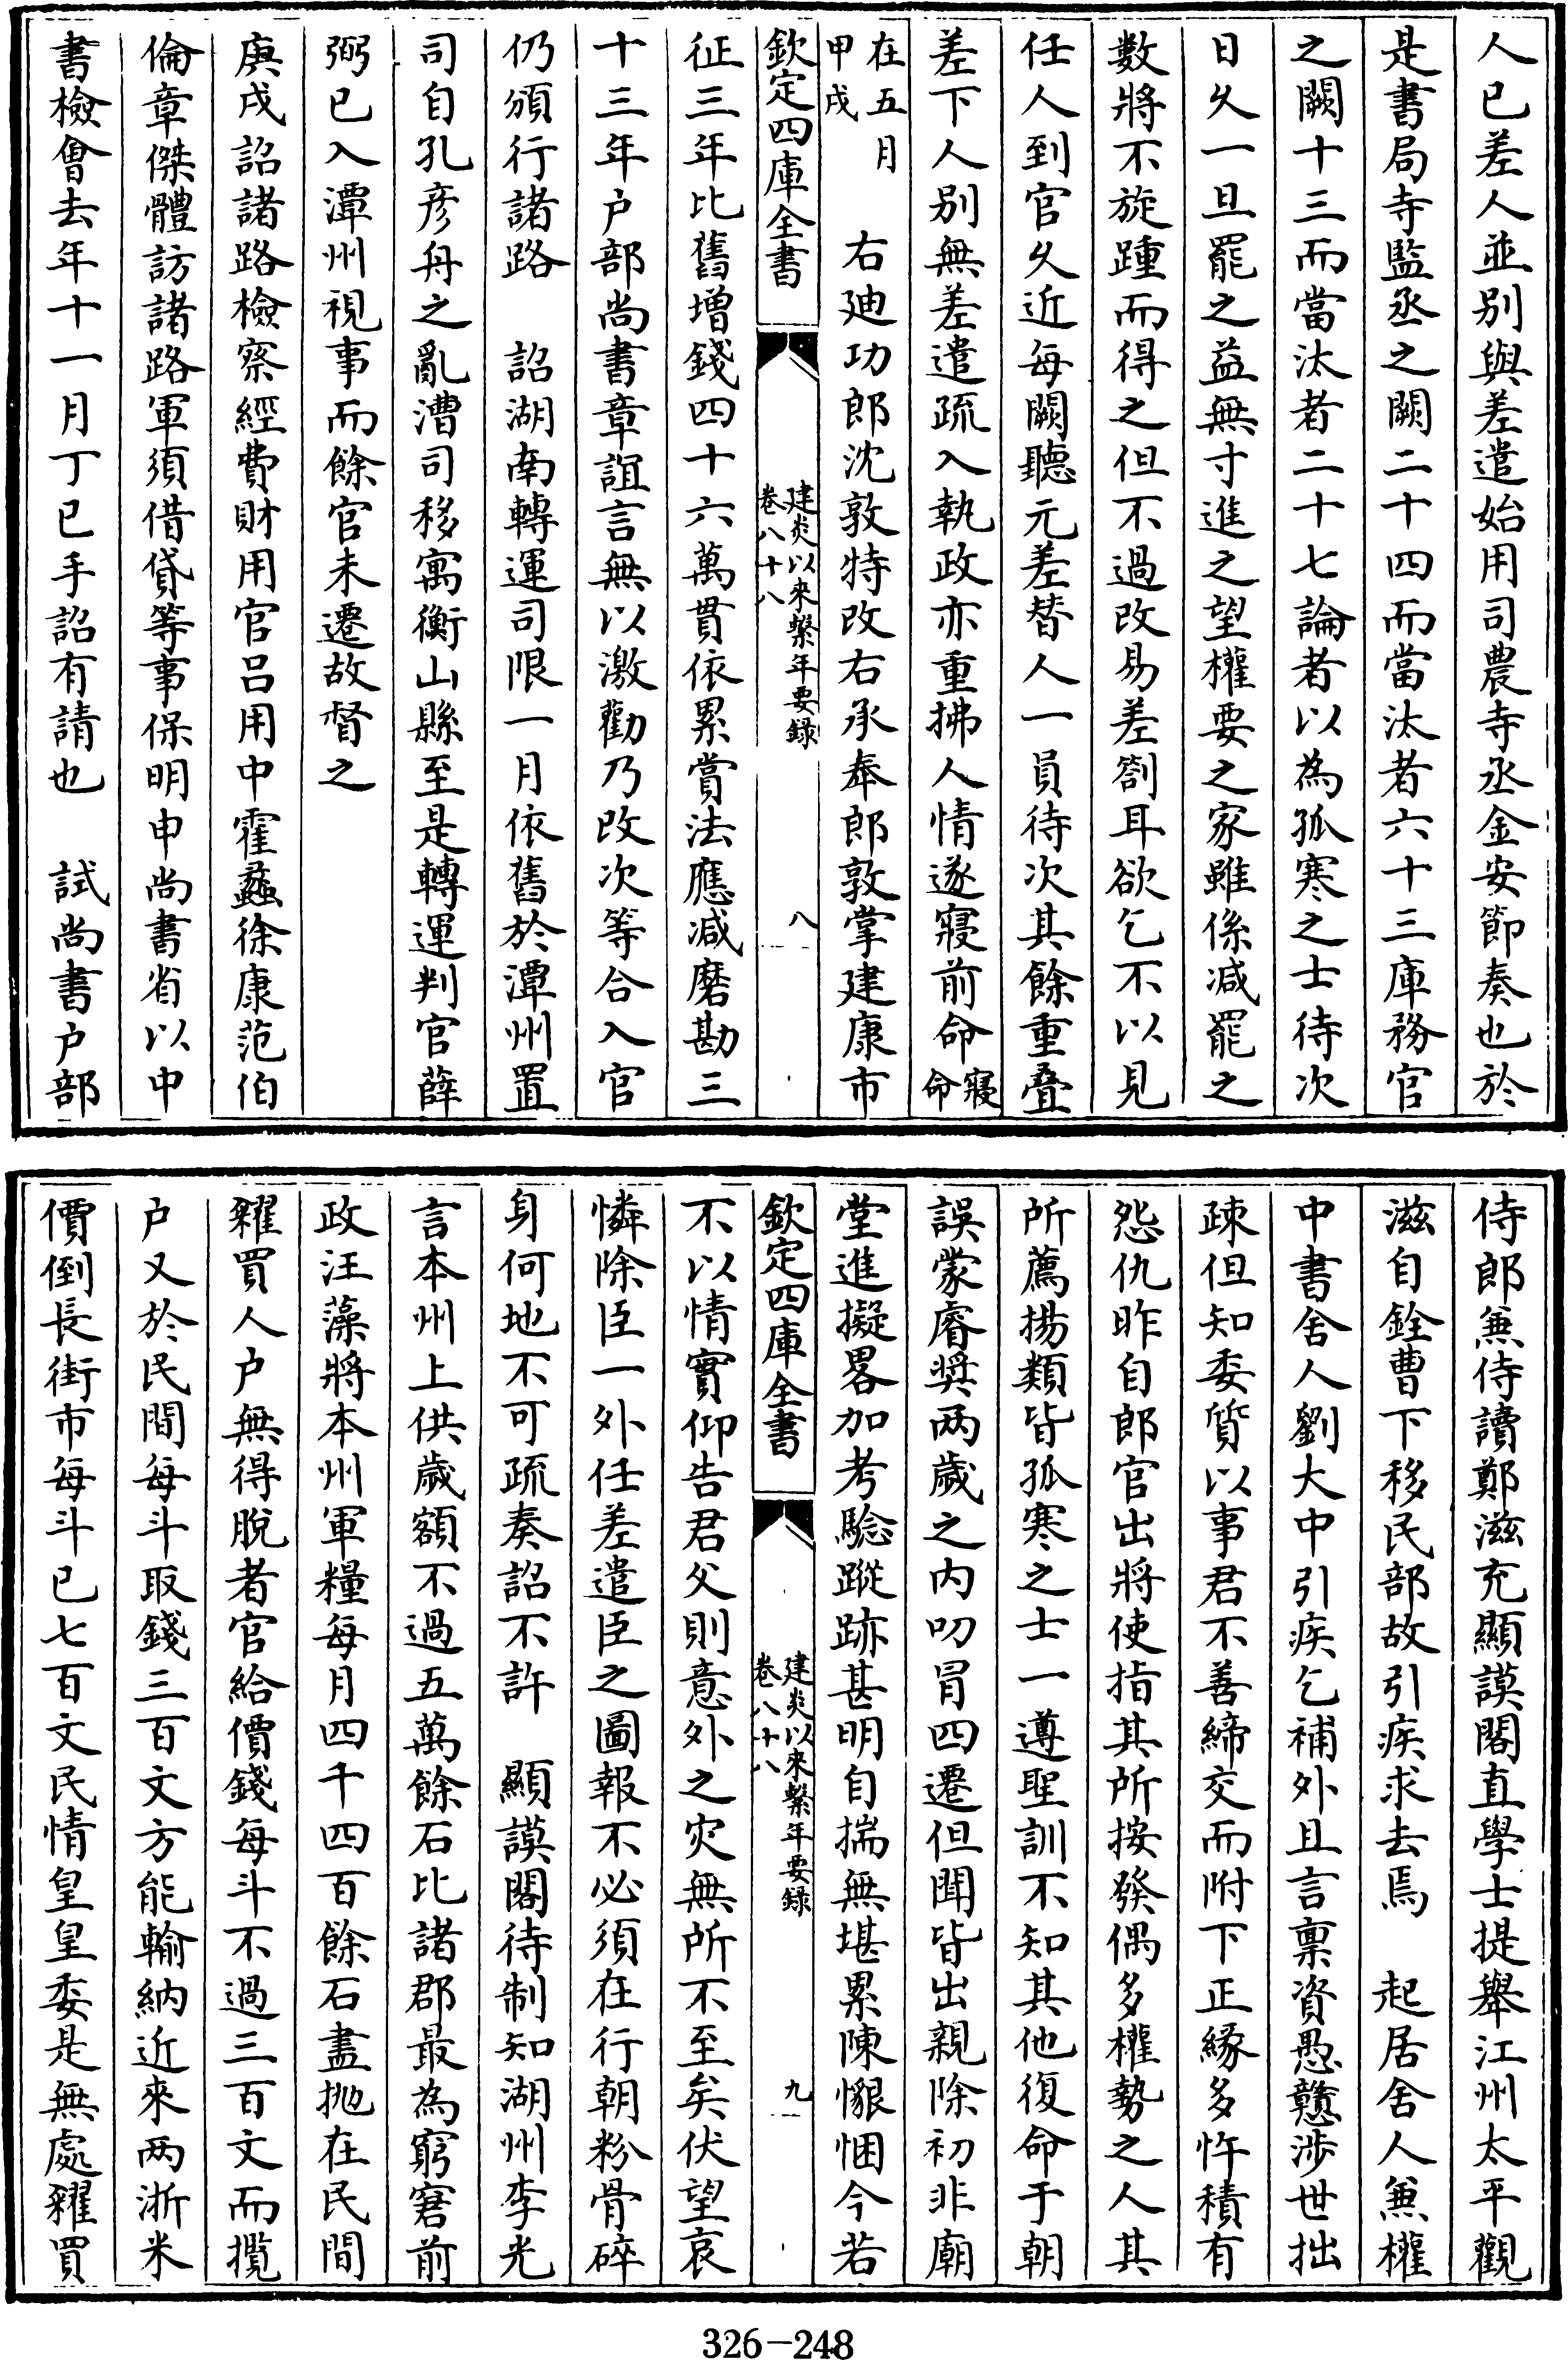 人已差人並别與差遣始用司農寺丞金安節奏也於
是書局寺監丞之闕二十四而當汰者六十三庫務官
之闕十三而當汰者二十七論者以為孤寒之士待次
日久一旦罷之益無寸進之望權要之家雖係減罷之
數將不旋踵而得之但不過改易差劄耳欲乞不以見
任人到官久近每闕聽元差替人一員待次其餘重疊
差下人别無差遣疏入執政亦重拂人情遂寢前命寢命
在五月甲戌 右廸功郎沈敦特改右承奉郎敦掌建康市
欽定四庫全書 建炎以來繫年要録 卷八十八 八
征三年比舊增錢四十六萬貫依累賞法應減磨勘三
十三年户部尚書章誼言無以激勸乃改次等合入官
仍頒行諸路 詔湖南轉運司限一月依舊於潭州置
司自孔彦舟之亂漕司移寓衡山縣至是轉運判官薛
弼已入潭州視事而餘官未遷故督之
庚戌詔諸路檢察經費財用官吕用中霍蠡徐康范伯
倫章傑體訪諸路軍須借貸等事保明申尚書省以中
書檢會去年十一月丁巳手詔有請也 試尚書户部
侍郎兼侍讀鄭滋充顯謨閣直學士提舉江州太平觀
滋自銓曹下移民部故引疾求去焉 起居舍人兼權
中書舍人劉大中引疾乞補外且言禀資愚戇涉世拙
疎但知委質以事君不善締交而附下正緣多忤積有
怨仇昨自郎官出將使指其所按發偶多權勢之人其
所薦揚類皆孤寒之士一遵聖訓不知其他復命于朝
誤蒙睿奬两歲之内叨冒四遷但聞皆出親除初非廟
堂進擬畧加考驗蹤跡甚明自揣無堪累陳懇悃今若
欽定四庫全書 建炎以來繫年要録 卷八十八 九
不以情實仰告君父則意外之灾無所不至矣伏望哀
憐除臣一外任差遣臣之圖報不必須在行朝粉骨碎
身何地不可疏奏詔不許 顯謨閣待制知湖州李光
言本州上供歲額不過五萬餘石比諸郡最為窮窘前
政汪藻將本州軍糧每月四千四百餘石盡抛在民間
糴買人户無得脫者官給價錢每斗不過三百文而攬
户又於民間每斗取錢三百文方能輸納近來两浙米
價倒長街市每斗已七百文民情皇皇委是無處糴買
326-248